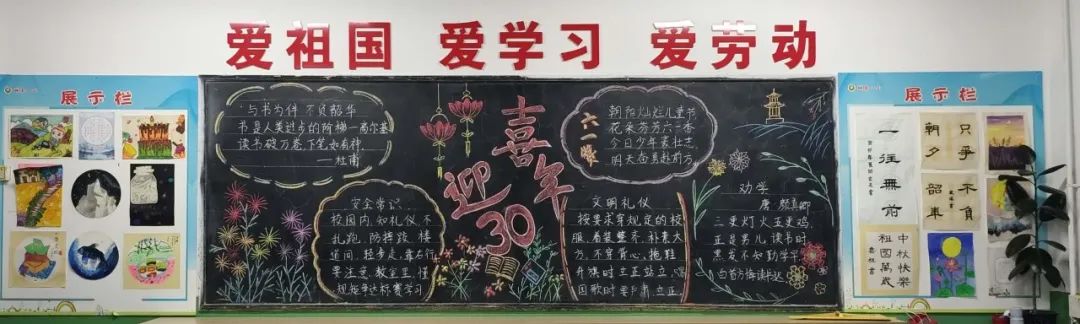 爱祖国 爱学习 爱劳动
展示栏
与书为伴 不负韶华
书是人类进步的阶梯—高尔基
读书破万卷，下笔如有神，
——杜甫
安全常识
校园内，知礼仪，不
乱跑，防摔跤，楼
道间，轻步走，靠右行
要注意，教室里，懂
规矩争达标赛学习
喜
迎
30
年
六一颂
朝阳灿烂儿童节
花朵芬芳六一香
今日少年表壮志
明天奋勇赴前方
文明礼仪
按要求穿规定的校
服，着装整齐、朴素大
方，不穿背心、拖鞋
升旗时立正站立，唱
国歌时要严肃，立正
劝学
唐·颜真卿
三更灯火五更鸡，
正是男儿读书时
黑发不知勤学早，
白首方悔读书迟
展示栏
一往無前
只爭朝夕
不負韶華
中秋快樂
祖國萬歲